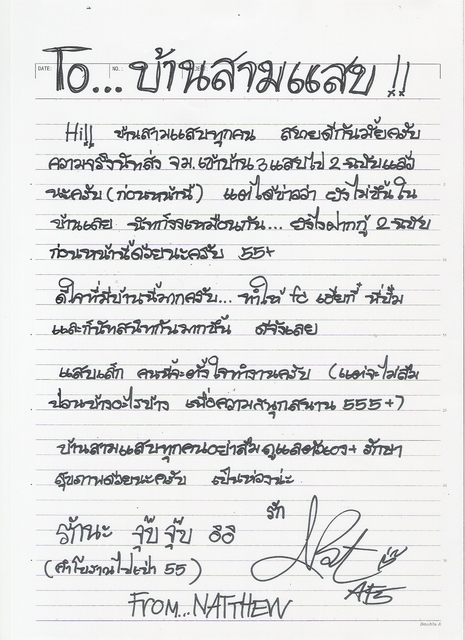 DATE:
NO.:
To... บ้านสามแสบ !!
Hi!! บ้านสามแสบทุกคน สบายดีกันมั้ยครับ
ความจริงนัทส่ง จม. เข้าบ้าน 3 แสบไป 2 ฉบับแล้ว
นะครับ (ก่อนหน้านี้) แต่ได้ข่าวว่า ยังไม่ขึ้นใน
บ้านเลย นัทก็งงเหมือนกัน... ยังไงฝากกู้ 2 ฉบับ
ก่อนหน้านี้ด้วยนะครับ 55+
ดีใจที่มีบ้านนี้มากครับ... ทำให้ fc เฮียกี้ พี่ปั้ม
และก็นัทสนิทกันมากขึ้น ดีจังเลย
แสบเล็ก คนนี้จะตั้งใจทำงานครับ (แต่จะไม่ลืม
ป่วนบ้างอะไรบ้าง เพื่อความสนุกสนาน 555+)
บ้านสามแสบทุกคนอย่าลืมดูแลตัวเอง + รักษา
สุขภาพด้วยนะครับ เป็นห่วงน่ะ
รัก
รักนะ จุ๊บ จุ๊บ อิอิ
(คำโบราณไปเปล่า 55)
Nat
AF5
FROM... NATTHEW
Double A